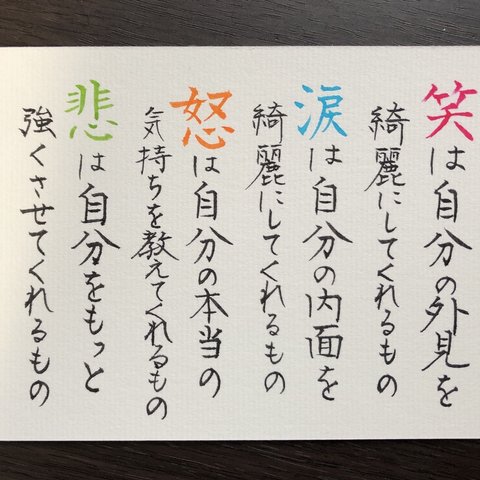 笑は自分の外見を
綺麗にしてくれるもの
涙は自分の内面を
綺麗にしてくれるもの
怒は自分の本当の
気持ちを教えてくれるもの
悲は自分をもっと
強くさせてくれるもの